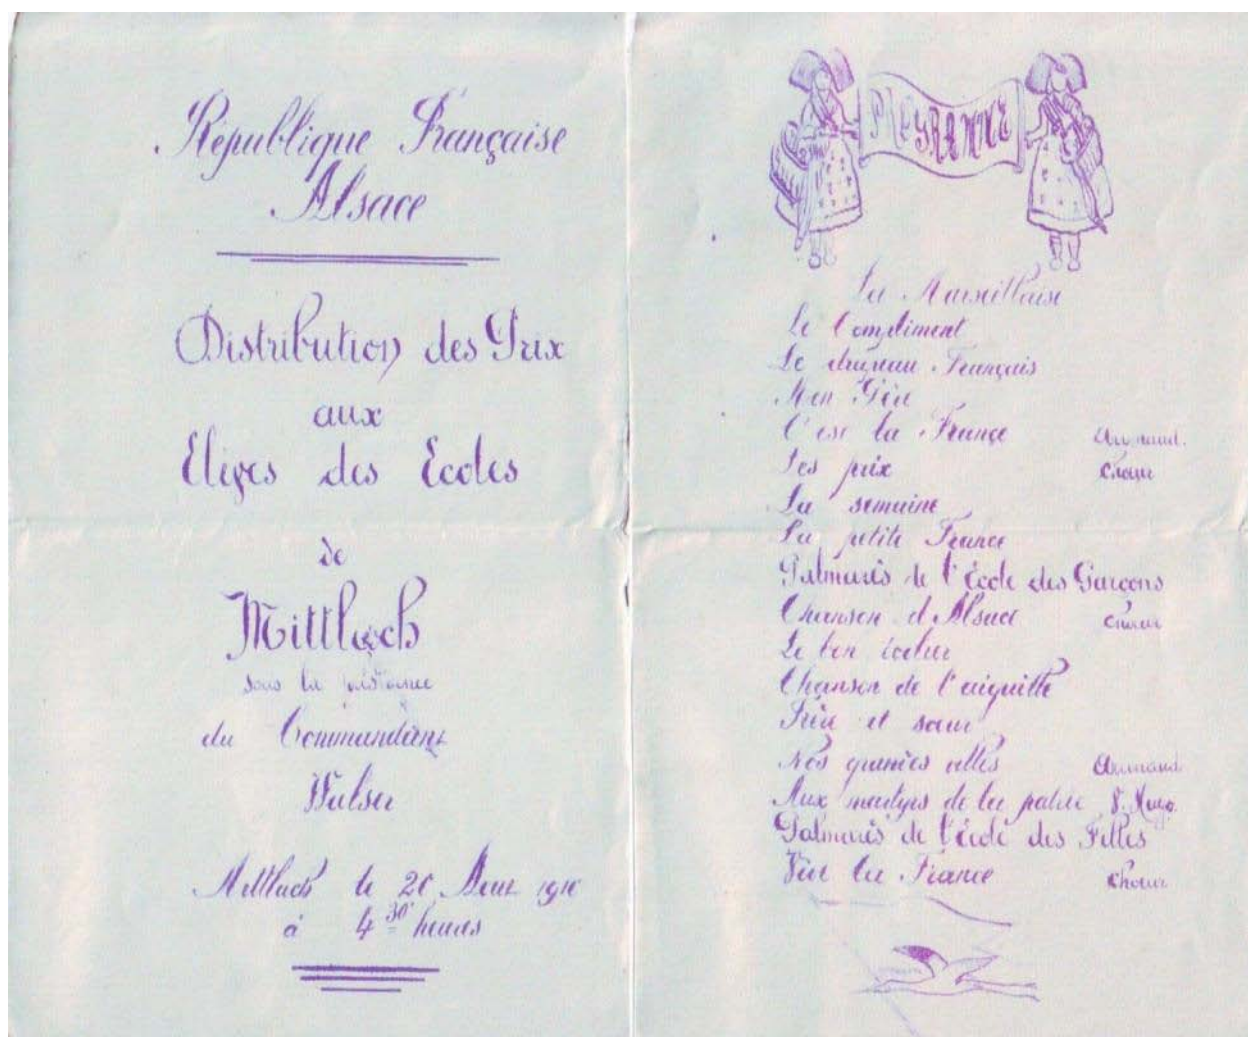 République Française
Alsace
Distribution des Prix
aux
Elèves des Ecoles
de
Mittlach
sous la présidence
du Commandant
Walser
Mittlach le 20 Aout
à 4 30' heures
PROGRAMME
La Marseillaise
Le Compliment
Le drapeau Français
Mon Père
C'est la France
Les prix Chœur
La semaine
La petite France
Palmarès de l'École des Garçons
Chanson d'Alsace Chœur
Le bon écolier
Chanson de l'aiguille
Frère et sœur
Nos grandes villes
Aux martyrs de la patrie V. Hugo.
Palmarès de l'école des Filles
Vive la France Chœur